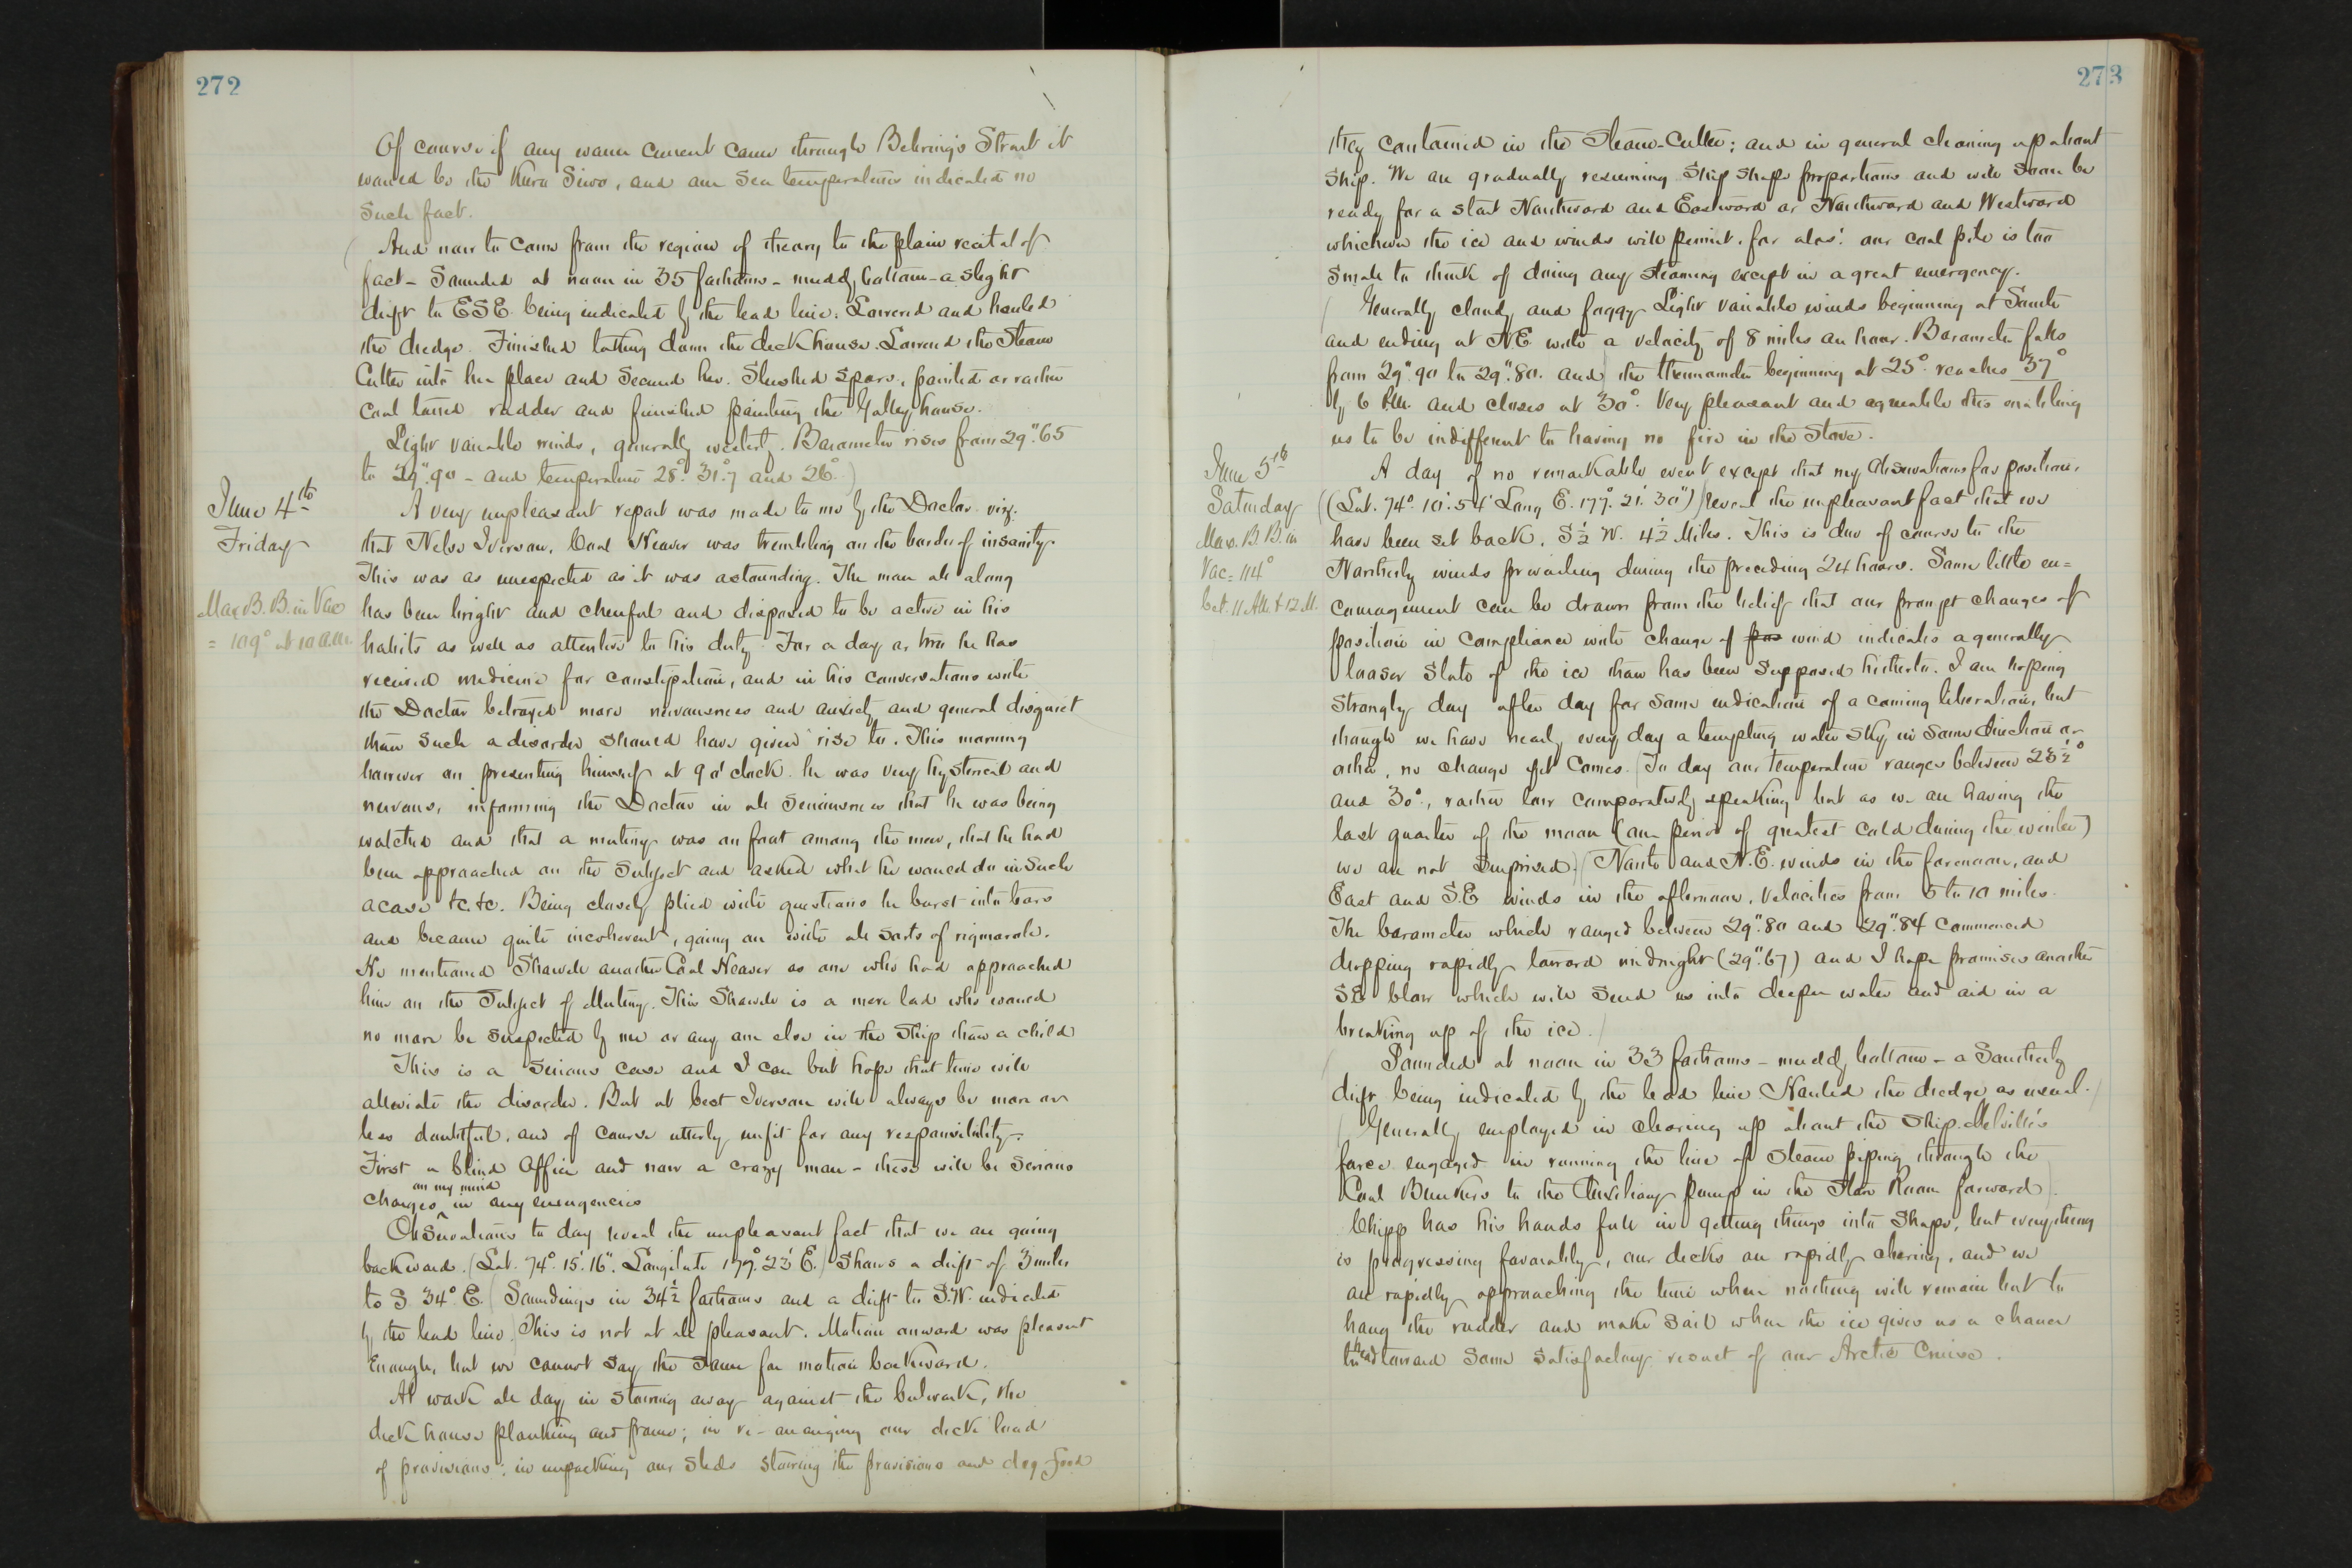 272
Of course if any warm current came through Behring's Strait it
would be the Kuro Siwo, and our sea temperatures indicated no
such fact.
(And now to come from the region of theory to the plain recital of
fact - Sounded at noon in 35 fathoms - muddy bottom - a slight
drift to ESE being indicated by the lead line. Lowered and hauled
the dredge. Finished taking down the deck house. Lowered the Steam
Cutter into her place and secured her. Slushed spars, painted or rather
coal tarred rudder and finished painting the Galley house.
Light variable winds, generally westerly. Barometer rises from 29".65
to 29".90 - and temperature 28° 31°.7 and 26°.)
June 4th
Friday
Max B. B. in Vac
= 109° at 10 A.M.
A very unpleasant report was made to me by the Doctor. viz:
that Nelse Iverson, Coal Heaver was trembling on the border of insanity.
This was as unexpected as it was astounding. The man all along
has been bright and cheerful and disposed to be active in his
habits as well as attentive to his duty. For a day or two he has
received medicine for constipation, and in his conversations with
the Doctor betrayed more nervousness and anxiety and general disquiet
than such a disorder should have given rise to. This morning
however on presenting himself at 9 o'clock he was very hysterical and
nervous, informing the Doctor in all seriousness that he was being
watched and that a mutiny was on foot among the men, that he had
been approached on the subject and asked what he would do in such
a case &c. &c. Being closely plied with questions he burst into tears
and became quite incoherent, going on with all sorts of rigmarole.
He mentioned Sharvell another Coal Heaver as one who had approached
him on the subject of Mutiny. This Sharvell is a mere lad who would
no more be suspected by me or any one else in the Ship than a child
This is a serious case and I can but hope that time will
alleviate the disorder. But at best Iverson will always be more or
less doubtful, and of course utterly unfit for any responsibility.
First a blind Officer and now a crazy man - these will be serious
charges on my mind in any emergencies
Observations to day reveal the unpleasant fact that we are going
backward. (Lat. 74°. 15'. 16". Longitude 177°. 23' E.) Shows a drift of 3 miles
to S 34° E. (Soundings in 34½ fathoms and a drift to S.W. indicated
by the lead line.) This is not at all pleasant. Motion onward was pleasant
enough, but we cannot say the same for motion backward.
At work all day in stowing away against the bulwark, the
deck house planking and frame; in re-arranging our deck load
of provisions; in unpacking our sleds stowing the provisions and dog food
273
they contained in the Steam-Cutter; and in general cleaning up about
ship. We are gradually resuming ship shape proportions and will soon be
ready for a start Northward and Eastward or Northward and Westward
whichever the ice and winds will permit, for alas! our coal pile is too
small to think of doing any steaming except in a great emergency.
(Generally cloudy and foggy. Light variable winds beginning at South
and ending at NE with a velocity of 8 miles an hour. Barometer falls
from 29".90 to 29".80. and the thermometer beginning at 25° reaches 37°
by 6 P.M. and closes at 30°. Very pleasant and agreeable this enabling
us to be indifferent to having no fire in the stove.
June 5th
Saturday
Max. B. B. in
Vac = 114°
bet. 11 A.M. & 12 M.
A day of no remarkable event except that my observations for position,
((Lat. 74°. 10'. 54" Long E. 177°. 21'. 30") reveal the unpleasant fact that we
have been set back, S ½ W. 4½ Miles. This is due of course to the
Northerly winds prevailing during the preceding 24 hours. Some little en=
couragement can be drawn from the belief that our prompt changes of
position in compliance with change of pos wind indicates a generally
looser state of the ice than has been supposed hitherto. I am hoping
strongly day after day for some indication of a coming liberation, but
though we have nearly every day a tempting water sky in some direction or
other, no change yet comes. (To day our temperature ranges between 23½°
and 30°, rather low comparatively speaking but as we are having the
last quarter of the moon (our period of greatest cold during the winter)
we are not surprised.) (North and N.E. winds in the forenoon, and
East and S.E winds in the afternoon, velocities from 5 to 10 miles.
The barometer which ranged between 29".80 and 29".84 commenced
dropping rapidly toward midnight (29".67) and I hope promises another
SE blow which will send us into deeper water and aid in a
breaking up of the ice.)
(Sounded at noon in 33 fathoms - muddy bottom - a Southerly
drift being indicated by the lead line Hauled the dredge as usual.)
(Generally employed in clearing up about the Ship. Melville's
force engaged in running the line of Steam piping through the
Coal Bunkers to the Auxiliary pump in the Store Room forward).
Chipp has his hands full in getting things into shape, but everything
is progressing favorably, our decks are rapidly clearing, and we
are rapidly approaching the time when nothing will remain but to
hang the rudder and make sail when the ice gives us a chance
to head toward some satisfactory result of our Arctic Cruise.